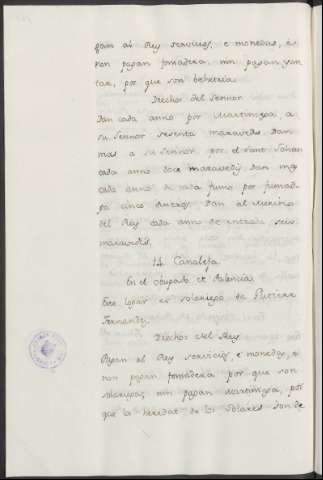 gan al Rey servicios, e monedas, é
non pagan fonsadera, nin pagan yan
tar, por que son behetria.
Drechos del Sennor
Dan cada anno por Martiniega, a
su Sennor sesenta maravedis. Dan
mas a su Sennor por el Sant Johan
cada anno doce maravedis. Dan mas
cada anno de cada fumo por fumada
ga cinco dineros. Dan al Merino
del Rey cada anno de entrada seis
maravedis.
14 Canaleja
En el obispado de Palencia
Este logar es solariego de Gutierre
Fernandez
Drechos del Rey
Pagan al Rey servicios, e monedas, é
non pagan fonsadera por que son
solariegos, nin pagan martiniega, por
que la heredat de los solares son de